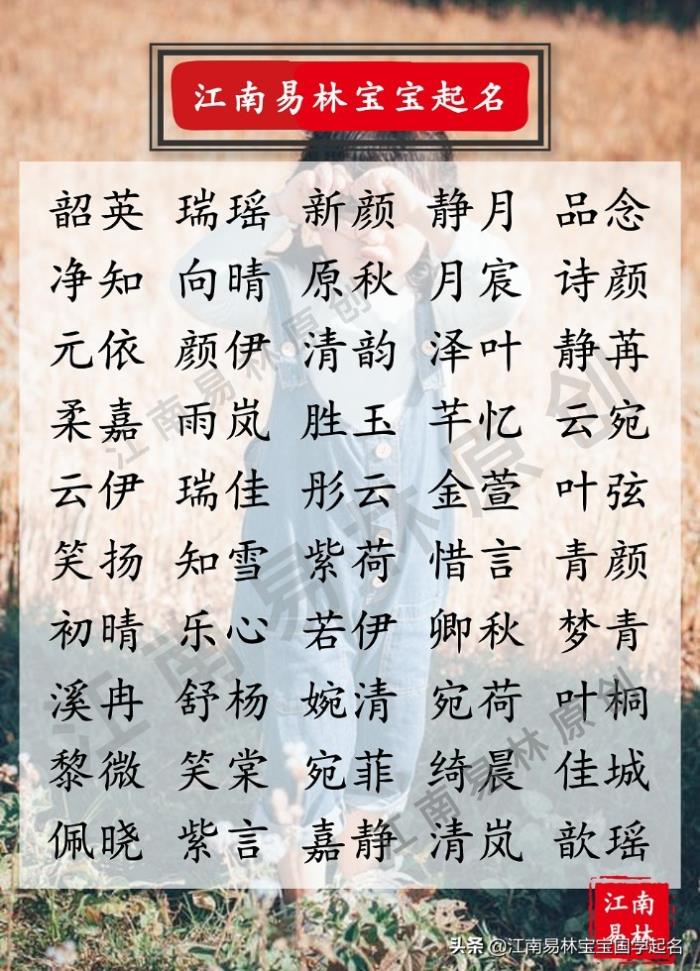 江南易林宝宝起名
韶英 瑞瑶 新颜 静月 品念
净知 向晴 原秋 月宸 诗颜
元依 颜伊 清韵 泽叶 静苒
柔嘉 雨岚 胜玉 芊忆 云宛
云伊 瑞佳 彤云 金萱 叶弦
笑扬 知雪 紫荷 惜言 青颜
初晴 乐心 若伊 卿秋 梦青
溪冉 舒杨 婉清 宛荷 叶桐
黎微 笑棠 宛菲 绮晨 佳城
佩晓 紫言 嘉静 清岚 歆瑶
江南易林原创
江南易林原创
江南易林原创
江南
易林
头条 @江南易林宝宝国学起名